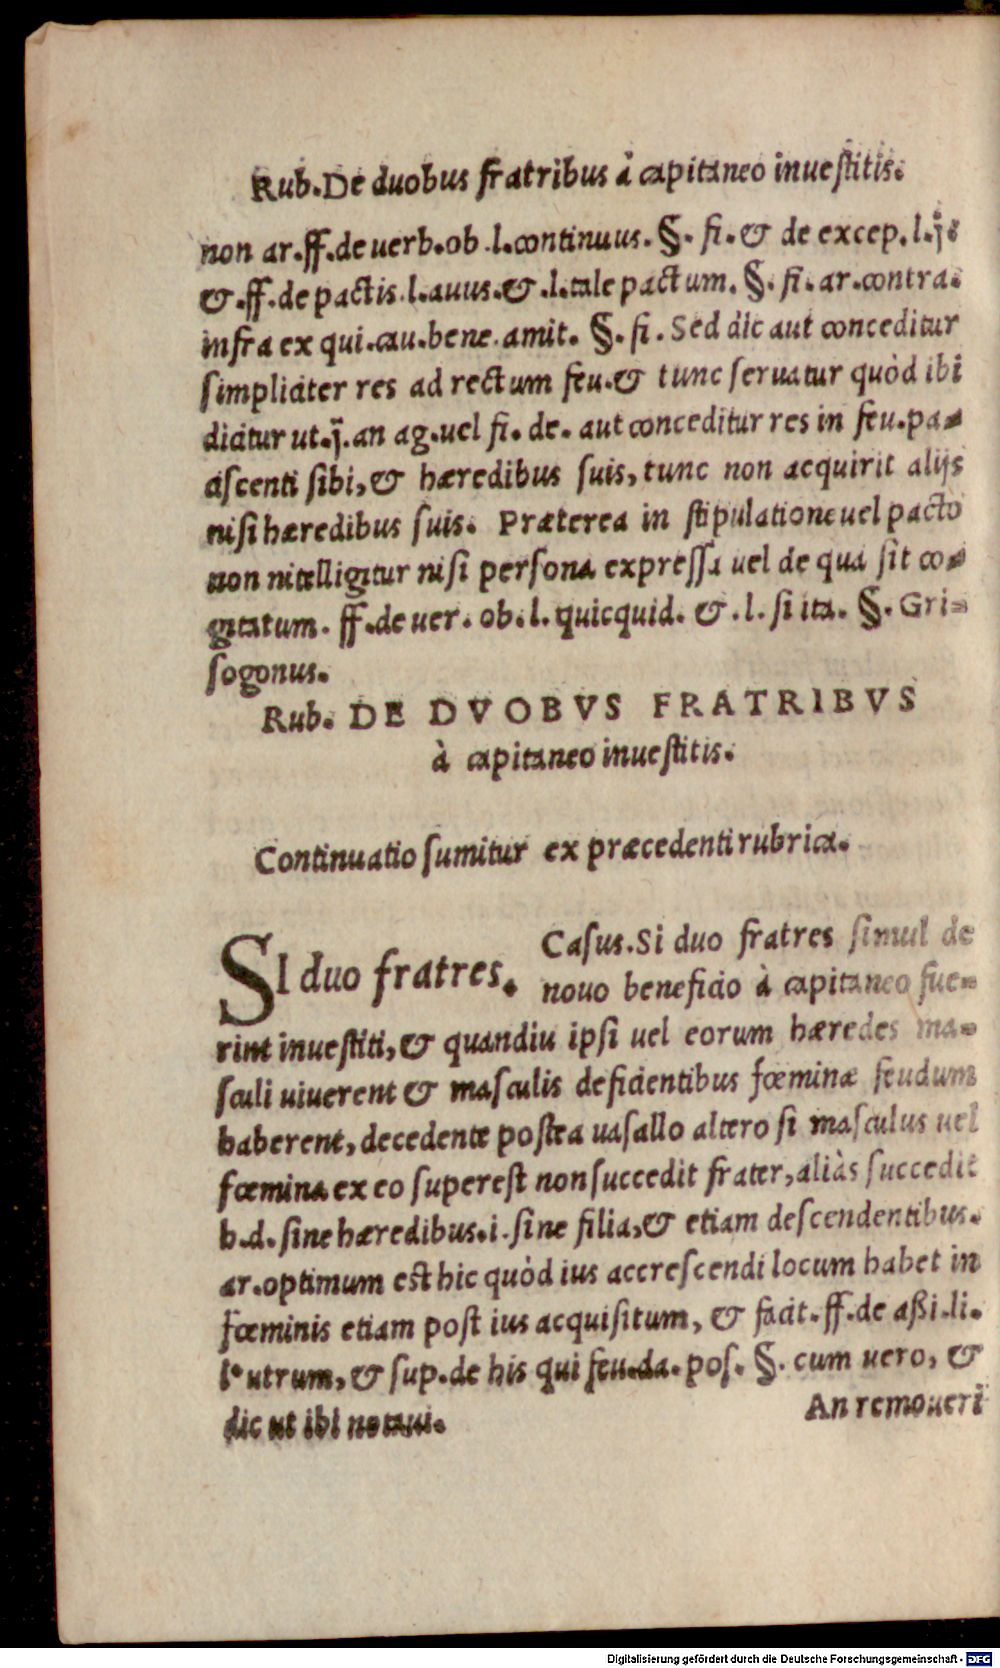 Rub. De duobus fratribus à capitaneo inuestitis.
non ar. ff. de uerb. ob. l. continuus. §. fi. & de excep. l. j̈.
&. ff. de pactis. l. auus. &. l. tale pactum. §. fi. ar. contra.
infra ex qui. cau. bene. amit. §. fi. Sed dic aut conceditur
simpliciter res ad rectum feu. & tunc seruatur quòd ibi
dicitur ut. j̈. an ag. uel fi. de. aut conceditur res in feu. pa-
ciscenti sibi, & hæredibus suis, tunc non acquirit alijs
nisi hæredibus suis. Præterea in stipulatione uel pacto
non nitelligitur nisi persona expressa uel de qua sit co-
gitatum. ff. de uer. ob. l. quicquid. &. l. si ita. §. Gri-
sogonus.
Rub. DE DVOBVS FRATRIBVS
à capitaneo inuestitis.
Continuatio sumitur ex præcedenti rubrica.
SI duo fratres. Casus. Si duo fratres simul de
nouo beneficio à capitaneo fue-
rint inuestiti, & quandiu ipsi uel eorum hæredes ma-
sculi uiuerent & masculis deficientibus fœminæ feudum
haberent, decedente postea uasallo altero si masculus uel
fœmina ex eo superest non succedit frater, aliàs succedit
h. d. sine hæredibus. i. sine filia, & etiam descendentibus.
ar. optimum est hic quòd ius accrescendi locum habet in
fœminis etiam post ius acquisitum, & facit. ff. de aßi. li.
l. utrum, & sup. de his qui feu. da. pos. §. cum uero, &
dic ut ibi notaui.
An remoueri
Digitalisierung gefördert durch die Deutsche Forschungsgemeinschaft - DFG